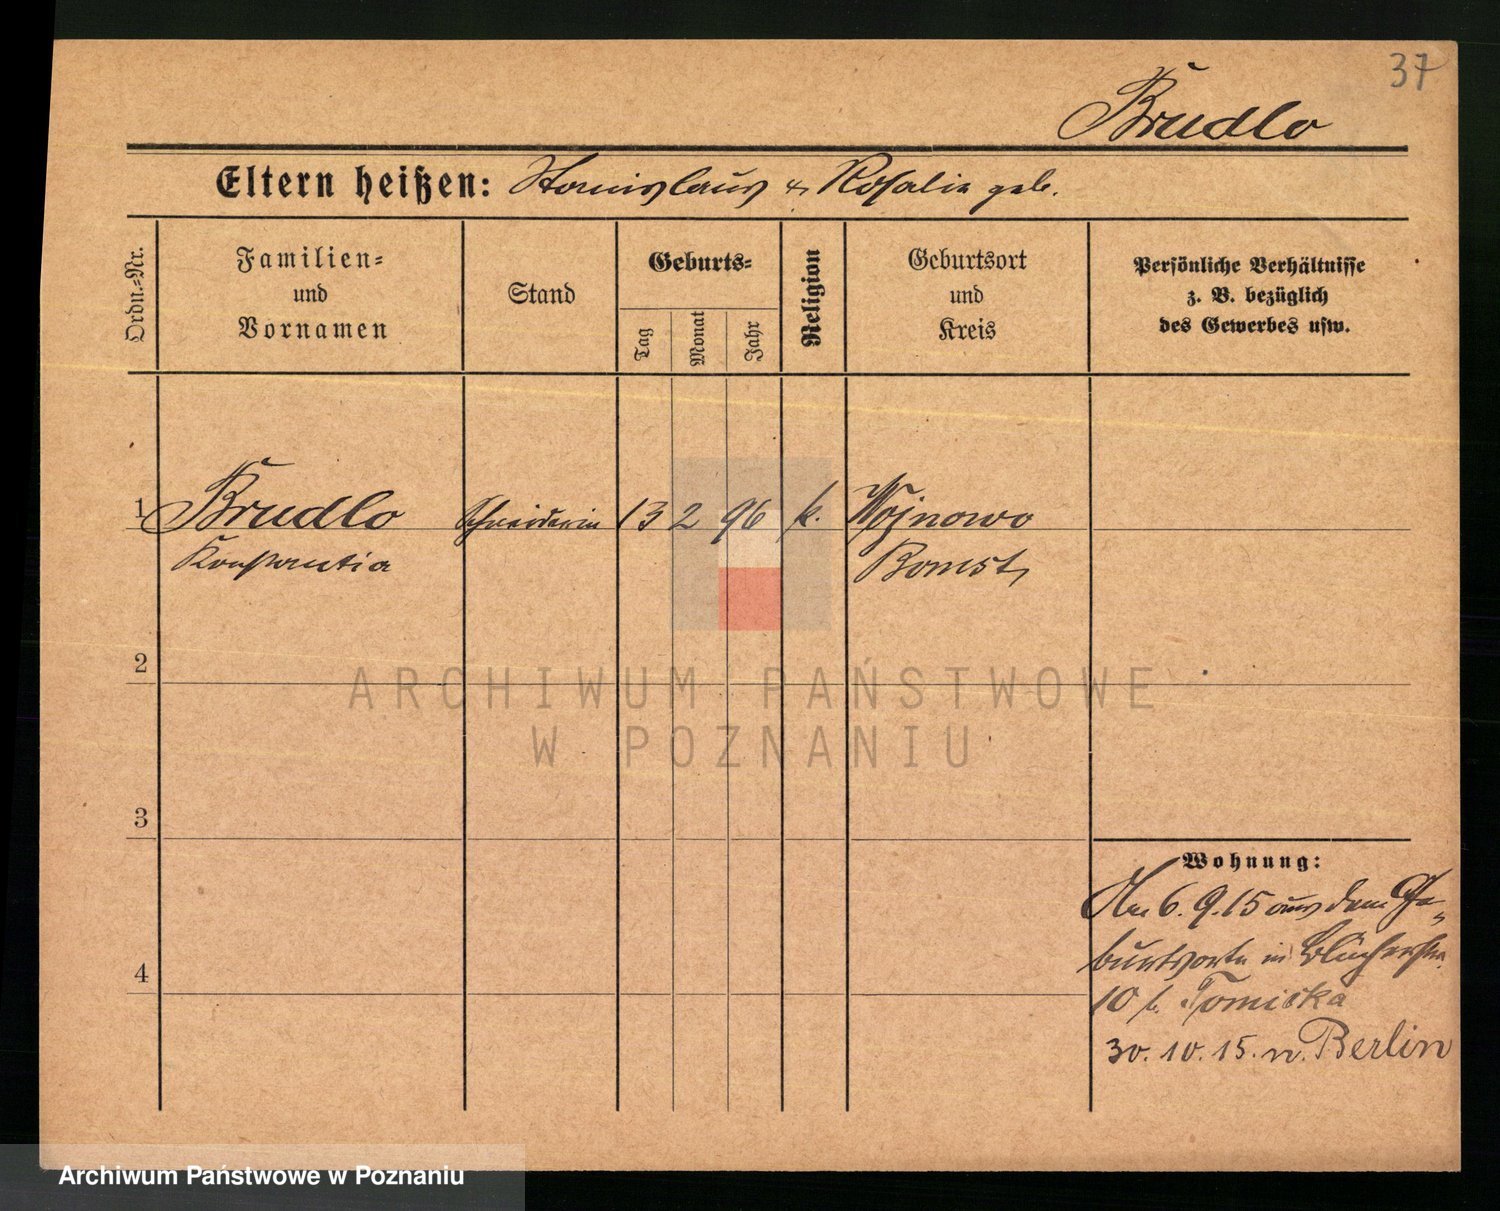 37
Brudlo
Eltern heißen: Stanislaus & Rosalia geb.
Ordn.-Nr.
Familien-
und
Vornamen
Stand
Geburts-
Tag
Monat
Jahr
Religion
Geburtsort
und
Kreis
Persönliche Verhältnisse
z. B. bezüglich
des Gewerbes usw.
1 Brudlo Schneiderin 13 2 96 k. Wojnowo
Konstantia Bomst
2
ARCHIWUM PAŃSTWOWE
W POZNANIU
3
Wohnung:
Am 6.9.15 aus dem Ge-
burtsorte in Blücherstr.
4
10 b. Tomicka
30.10.15. n. Berlin
Archiwum Państwowe w Poznaniu